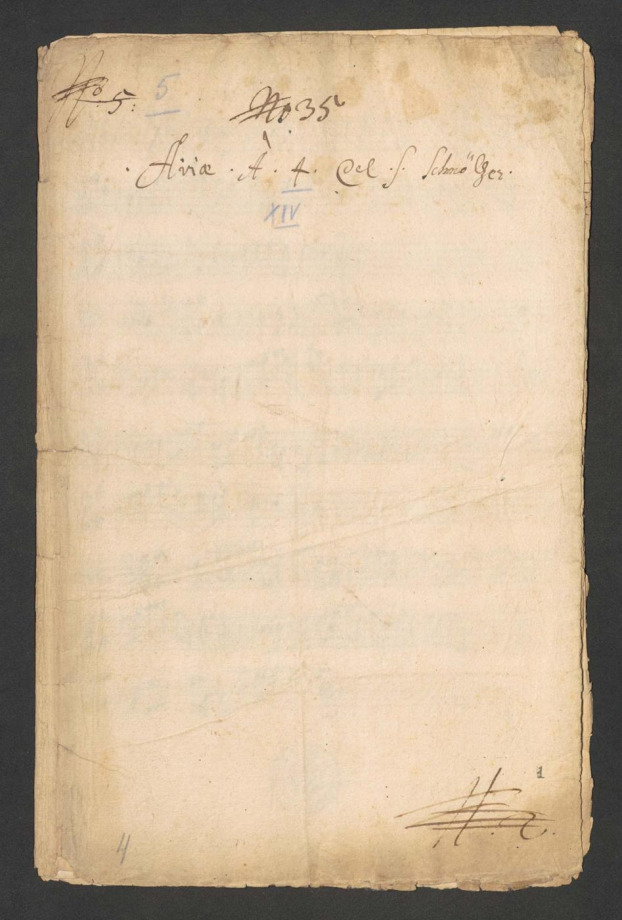 No 5: 5
No 35
Ariæ. À. 4. Del S. Schmölzer.
XIV
1
4